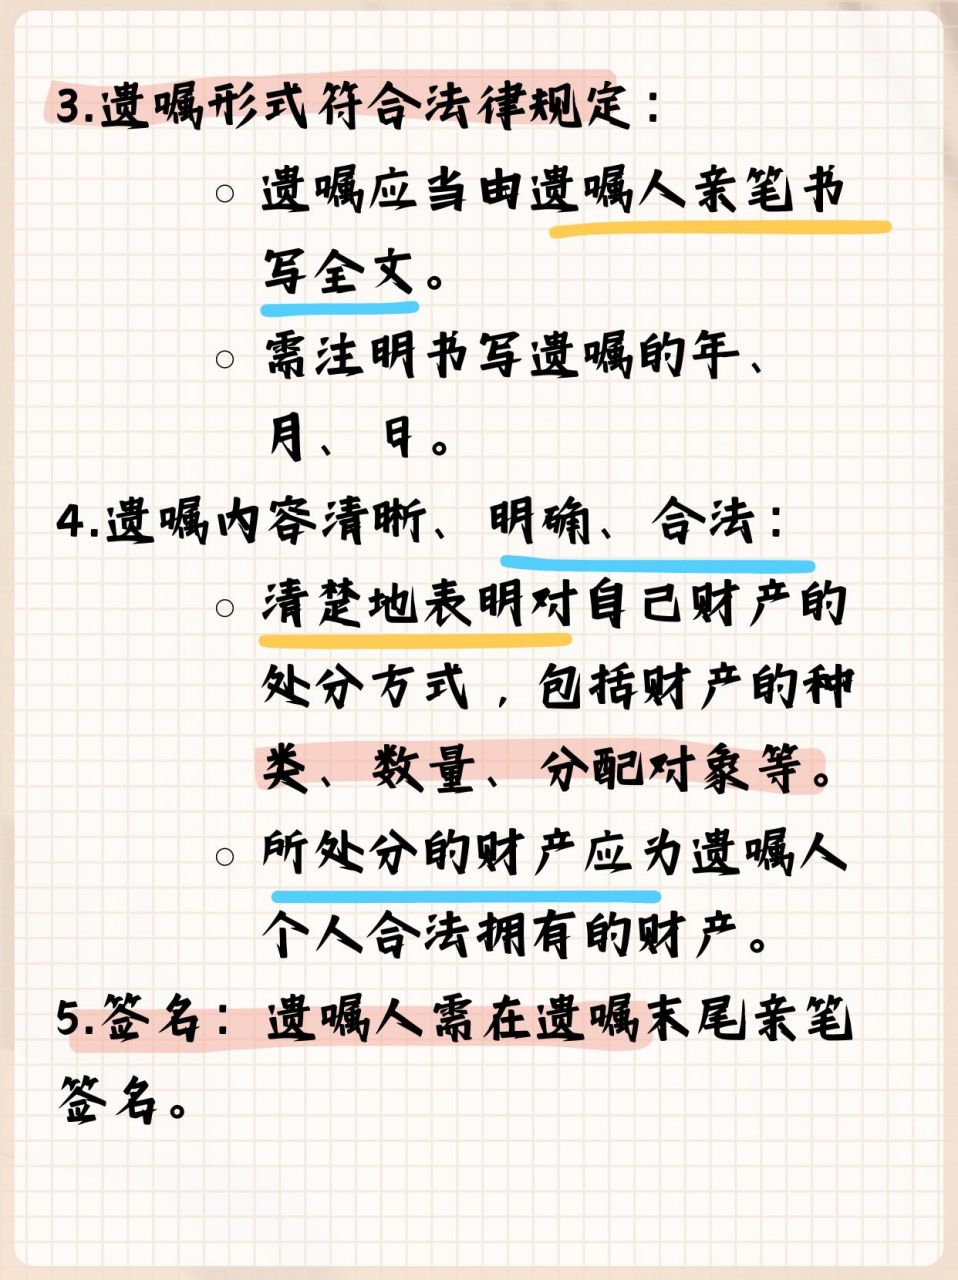 3.遗嘱形式符合法律规定：
○ 遗嘱应当由遗嘱人亲笔书
写全文。
○ 需注明书写遗嘱的年、
月、日。
4.遗嘱内容清晰、明确、合法：
○ 清楚地表明对自己财产的
处分方式，包括财产的种
类、数量、分配对象等。
○ 所处分的财产应为遗嘱人
个人合法拥有的财产。
5.签名：遗嘱人需在遗嘱末尾亲笔
签名。